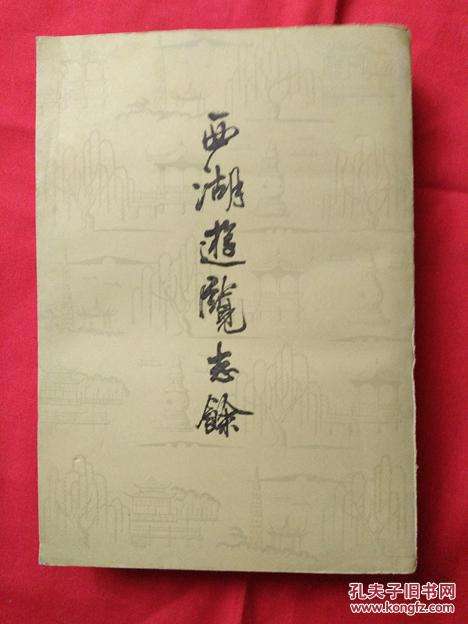 西湖遊覽志餘
孔夫子旧书网
www.kongfz.com